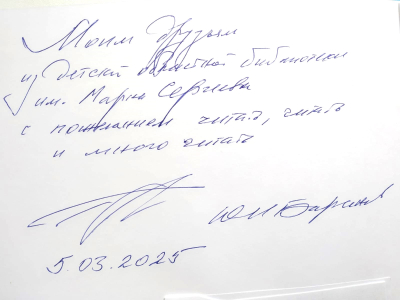 Моим друзьям
из детской областной библиотеки
им. Марка Сергеева
с пожеланием читать, читать
и много читать
Ю И Баранов
5.03.2025